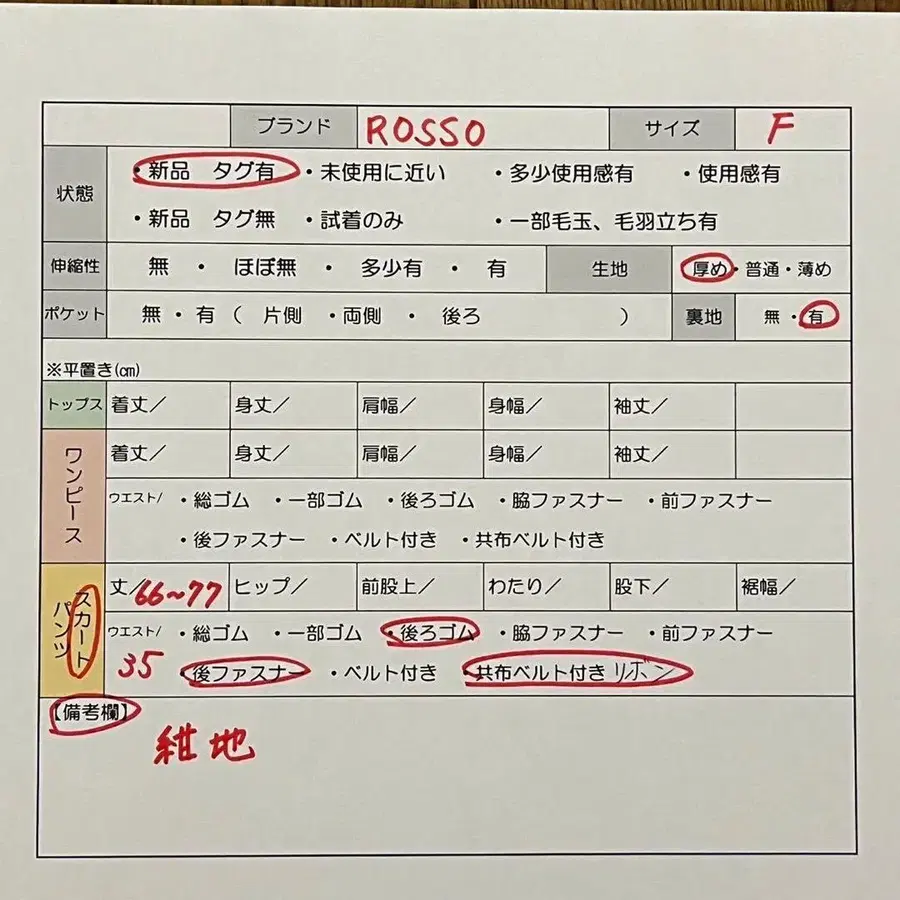 ブランド ROSSO サイズ F
状態 ・新品 タグ有 ・未使用に近い ・多少使用感有 ・使用感有
・新品 タグ無 ・試着のみ ・一部毛玉、毛羽立ち有
伸縮性 無 ・ ほぼ無 ・ 多少有 ・ 有 生地 厚め・普通・薄め
ポケット 無 ・ 有 ( 片側 ・両側 ・ 後ろ ) 裏地 無 ・ 有
※平置き(cm)
トップス 着丈/ 身丈/ 肩幅/ 身幅/ 袖丈/
ワンピース 着丈/ 身丈/ 肩幅/ 身幅/ 袖丈/
ウエスト/ ・総ゴム ・一部ゴム ・後ろゴム ・脇ファスナー ・前ファスナー
・後ファスナー ・ベルト付き ・共布ベルト付き
スカート パンツ 丈/66~77 ヒップ/ 前股上/ わたり/ 股下/ 裾幅/
ウエスト/ ・総ゴム ・一部ゴム ・後ろゴム ・脇ファスナー ・前ファスナー
35 ・後ファスナー ・ベルト付き ・共布ベルト付き リボン
【備考欄】
紺地